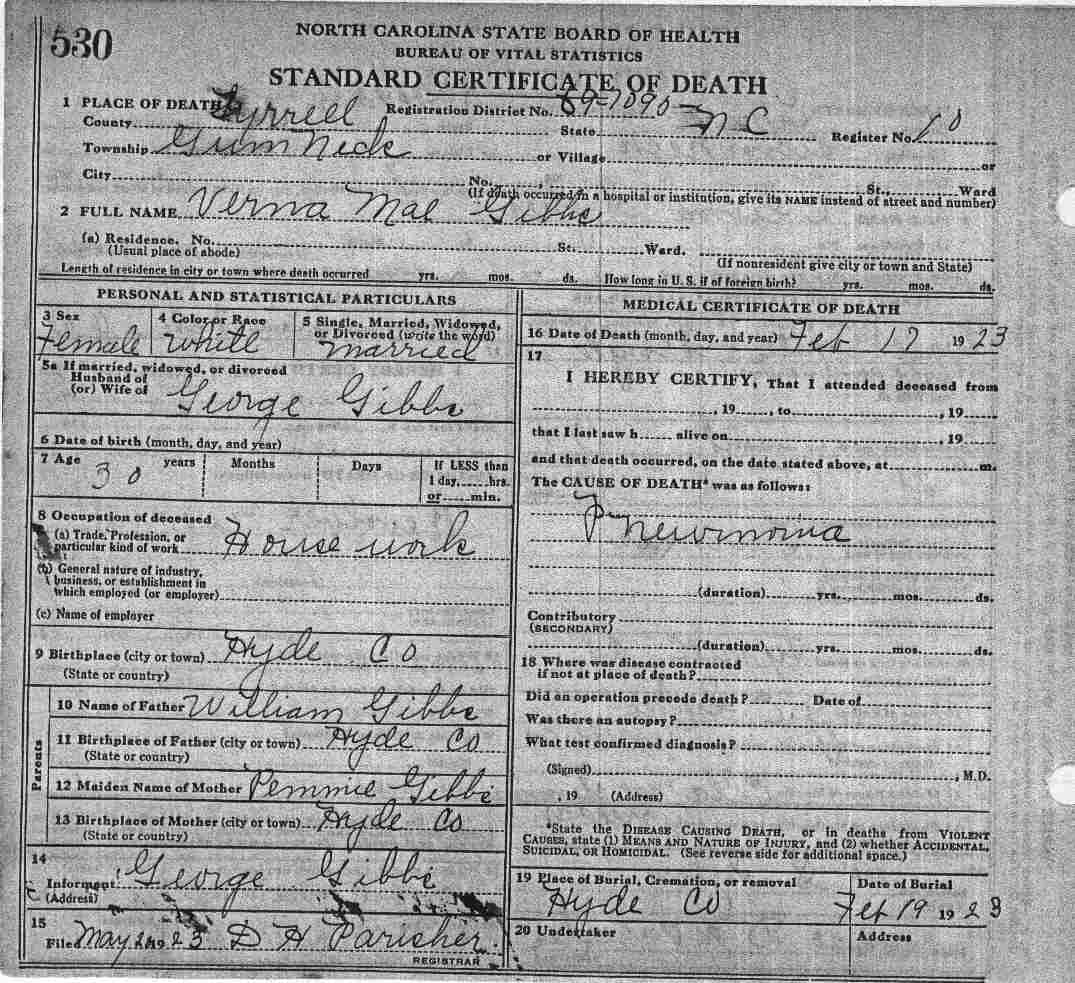 530
NORTH CAROLINA STATE BOARD OF HEALTH
BUREAU OF VITAL STATISTICS
STANDARD CERTIFICATE OF DEATH
1 PLACE OF DEATH Registration District No. 89-7090
County Tyrrell State N C Register No. 10
Township Gum Neck or Village or
City No. St., Ward
(If death occurred in a hospital or institution, give its NAME instead of street and number)
2 FULL NAME Verna Mae Gibbs
(a) Residence. No. St. Ward.
(Usual place of abode) (If nonresident give city or town and State)
Length of residence in city or town where death occurred yrs. mos. ds. How long in U. S. if of foreign birth? yrs. mos. ds.
PERSONAL AND STATISTICAL PARTICULARS
3 Sex
Female
4 Color or Race
White
5 Single, Married, Widowed,
or Divorced (write the word)
married
5a If married, widowed, or divorced
Husband of
(or) Wife of George Gibbs
6 Date of birth (month, day, and year)
7 Age 30 years Months Days
If LESS than
1 day, hrs.
or min.
8 Occupation of deceased
(a) Trade, Profession, or
particular kind of work House work
(b) General nature of industry,
business, or establishment in
which employed (or employer)
(c) Name of employer
9 Birthplace (city or town) Hyde Co
(State or country)
Parents
10 Name of Father William Gibbs
11 Birthplace of Father (city or town) Hyde Co
(State or country)
12 Maiden Name of Mother Pemmie Gibbs
13 Birthplace of Mother (city or town) Hyde Co
(State or country)
14
Informent George Gibbs
(Address)
15
File May 24 1923 D H Parisher
REGISTRAR
MEDICAL CERTIFICATE OF DEATH
16 Date of Death (month, day, and year) Feb 17 1923
17
I HEREBY CERTIFY, That I attended deceased from
, 19 , to , 19
that I last saw h alive on , 19
and that death occurred, on the date stated above, at m.
The CAUSE OF DEATH* was as follows:
Pnewmonia
(duration) yrs. mos. ds.
Contributory
(SECONDARY)
(duration) yrs. mos. ds.
18 Where was disease contracted
if not at place of death?
Did an operation precede death? Date of
Was there an autopsy?
What test confirmed diagnosis?
(Signed) , M.D.
, 19 (Address)
*State the DISEASE CAUSING DEATH, or in deaths from VIOLENT
CAUSES, state (1) MEANS AND NATURE OF INJURY, and (2) whether ACCIDENTAL,
SUICIDAL, OR HOMICIDAL. (See reverse side for additional space.)
19 Place of Burial, Cremation, or removal
Hyde Co
Date of Burial
Feb 19 1923
20 Undertaker
Address